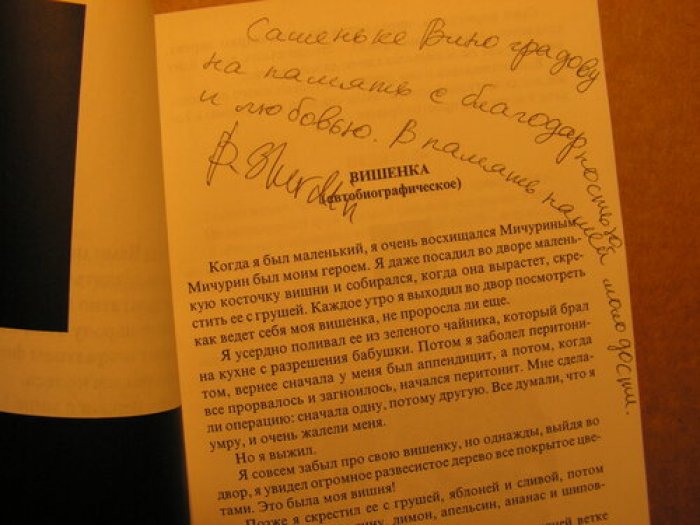 Сашеньке Виноградову
на память с благодарностью
и любовью. В память нашей молодости.
ВИШЕНКА
(автобиографическое)
Когда я был маленький, я очень восхищался Мичуриным.
Мичурин был моим героем. Я даже посадил во дворе малень-
кую косточку вишни и собирался, когда она вырастет, скре-
стить ее с грушей. Каждое утро я выходил во двор посмотреть
как ведет себя моя вишенка, не проросла ли еще.
Я усердно поливал ее из зеленого чайника, который брал
на кухне с разрешения бабушки. Потом я заболел перитони-
том, вернее сначала у меня был аппендицит, а потом, когда
все прорвалось и загноилось, начался перитонит. Мне сдела-
ли операцию: сначала одну, потому другую. Все думали, что я
умру, и очень жалели меня.
Но я выжил.
Я совсем забыл про свою вишенку, но однажды, выйдя во
двор, я увидел огромное развесистое дерево все покрытое цве-
тами. Это была моя вишня!
Позже я скрестил ее с грушей, яблоней и сливой, потом
лимон, апельсин, ананас и шипов-
ветке